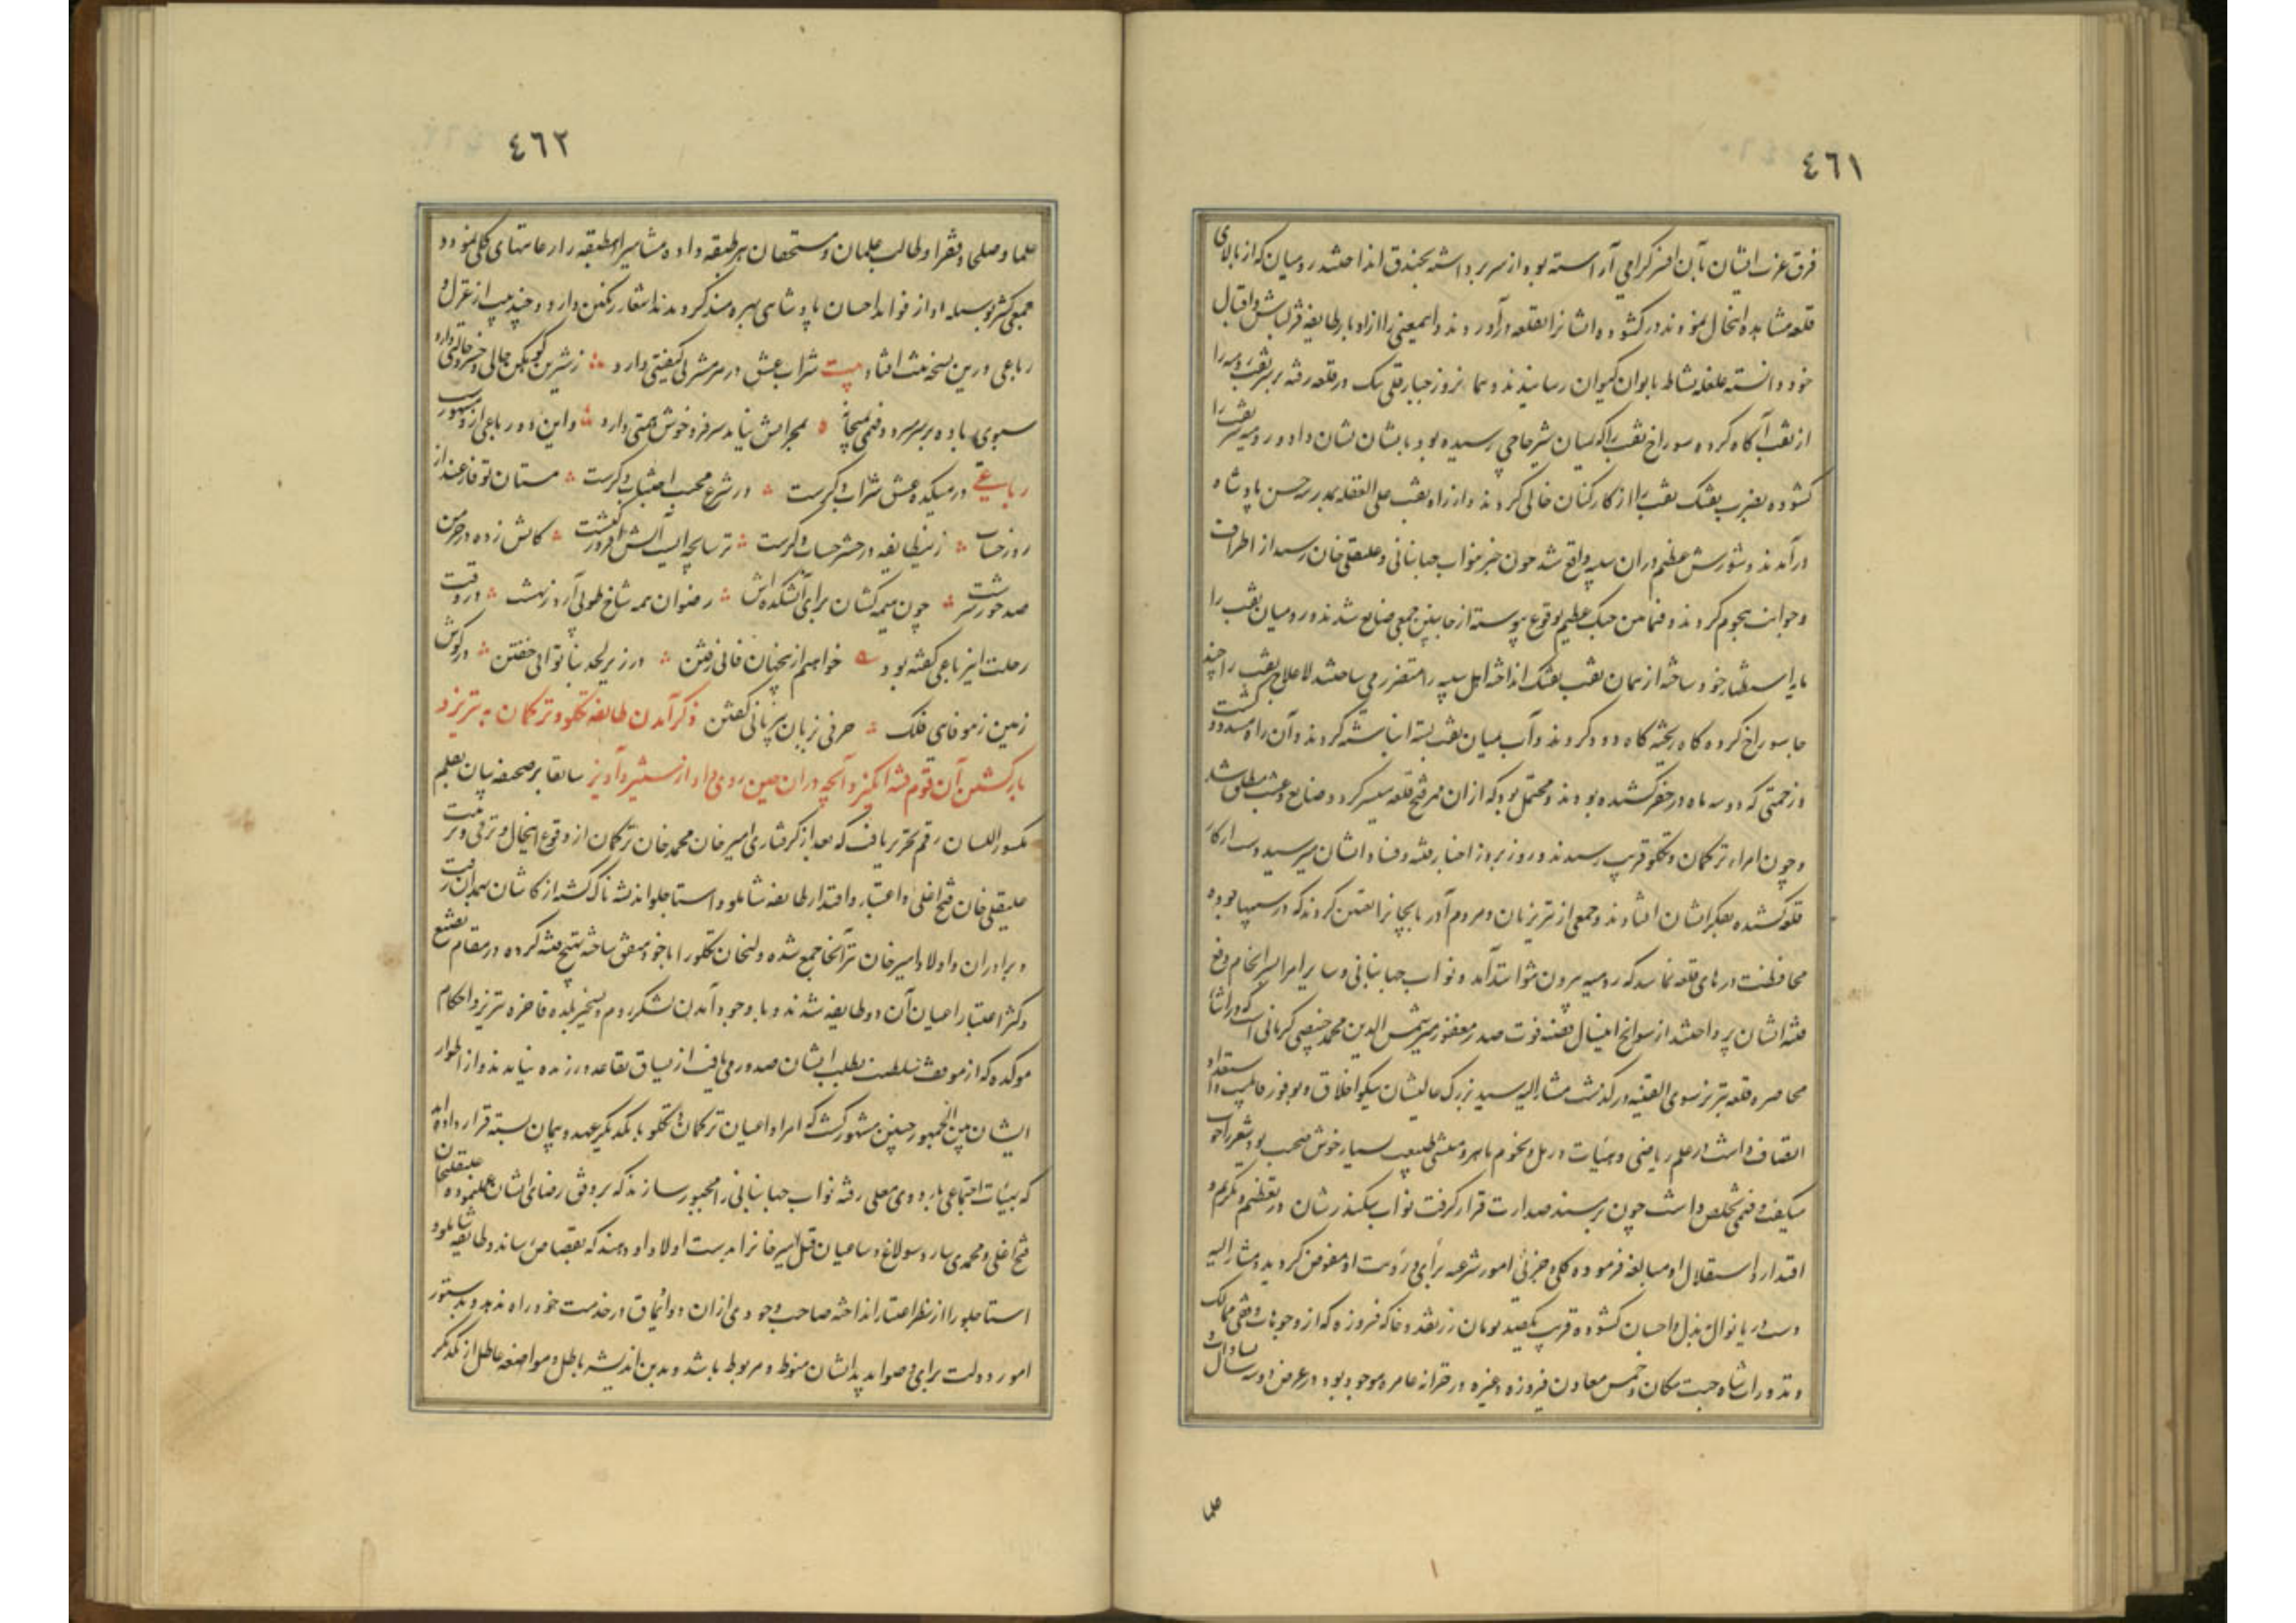 ٤٦١
فرق عزت ایشان بآن افسر گرامی آراسته بود از سر برداشته بخندق انداختند رومیان که از بالای
قلعه مشاهده اینحال نمودند در گشوده ایشانرا بقلعه درآوردند و اینمعنی را از ادبار طایفه قزلباش و اقبال
خود دانسته غلغله نشاط بایوان کیوان رسانیدند و همانروز جبارقلی بیک در قلعه رفته بر سر نقب رومیه را
از نقب آگاه کرده سوراخ نقب را که بمیان شیر حاجی رسیده بود بایشان نشان داد و رومیه سر نقب را
گشوده بضرب تفنگ نقب را از کارکنان خالی کردند و از راه نقب علی الغفله بمدرسه حسن پادشاه
درآمدند و شورش عظیم در ان سیبه واقع شد چون خبر بنواب جهانبانی و علیقلی خان رسید از اطراف
و جوانب هجوم کردند و فیمابین جنک عظیم بوقوع پیوسته از جانبین جمعی ضایع شدند و رومیان نقب را
باید استظهار خود ساخته از همان نقب تفنک انداخته اهل سیبه را متضرر می ساختند لاعلاج نقب را چند
جا سوراخ کرده کاه ریخته کاه دود کردند و آب بمیان نقب بسته انباشته کردند و آن راه مسدود گشت
و زحمتی که دو سه ماه در حفر کشیده بودند و محتمل بود که از ان ممر فتح قلعه میسر گردد ضایع و عبث مطلق شد
و چون امراء ترکمان و تکلو قریب رسیدند و روز بروز اخبار فتنه و فساد ایشان میرسید دست از کار
قلعه کشیده بفکر ایشان افتادند و جمعی از تبریزیان و مردم آذربایجانرا تعیین کردند که در سیبها بوده
محافظت درهای قلعه نمایند که رومیه بیرون نتوانند آمد و نواب جهانبانی و سایر امرا بسرانجام دفع
فتنه ایشان پرداختند از سوانح اینسال قضیه فوت صدر مغفور میر شمس الدین محمد خبیصی کرمانی است که در اثنا
محاصره قلعه تبریز سوی العقبی درگذشت مشار الیه سید بزرگ عالیشان نیکو اخلاق و بوفور قابلیت و استعداد
اتصاف داشت در علم ریاضی و هیئات و رمل و نجوم ماهر و منشی طبیعت بسیار خوش صحبت بود شعر را خوب
میگفت و فهمی تخلص داشت چون بر مسند صدارت قرار گرفت نواب سکندرشان در تعظیم و تکریم و
اقتدار و استقلال او مبالغه فرموده کلی و جزئی امور شرعیه برأی و رؤیت او مفوض گردید و مشار الیه
دست دریا نوال ببذل و احسان گشوده قریب یکصد تومان زر نقد و خاکه فیروزه که از وجوهات وقفی ممالک
و نذورات شاه جنت مکان و خمس معادن فیروزه و غیره در خزانه عامره موجود بود در عرض دو سه سال بسادات و
علما
٤٦٢
علما و صلحا و فقرا و طالب علمان و مستحقان هر طبقه داده مشاهیر این طبقه را رعایتهای کلی نمود و
جمعی کثیر بوسیله او از فواید احسان پادشاهی بهره مند گردیدند اشعار رنگین دارد و چند بیت از غزل و
رباعی درین نسخه ثبت افتاد بیت شراب عشق در هر مشربی کیفیتی دارد ز شیرین کوهکن حالی و خسرو حالتی دارد
سبوی باده بر سر میرود فهمی بمیخانه بمجرائیش نیاید سر فرو خوش همتی دارد و این دو رباعی از و مشهور است
رباعی در میکده عشق شراب دگرست در شرع محبت احتساب دگرست مستان تو فارغند از
روز حساب زین طایفه در حشر حساب دگرست ترسا بچه ایست آتش افروز کنشت کاتش زده در خرمن
صد حور سرشت چون هیمه کشان برای آتشکده اش رضوان همه شاخ طوبی آرد ز بهشت در وقت
رحلت این رباعی گفته بود خواهم ز جهان فانی رفتن در زیر لحد بناتوانی خفتن در گوش
زمین ز بیوفائی فلک حرفی ز زبان بی زبانی گفتن ذکر آمدن طایفه تکلو و ترکمان به تبریز و
باز گشتن آن قوم فتنه انگیز و آنچه در ان حین روی داد از ستیز و آویز سابقا بر صحیفه بیان بقلم
مکسور اللسان رقم تحریر یافت که بعد از گرفتاری امیر خان محمد خان ترکمان از وقوع اینحال و ترقی و تربیت
علیقلی خان فتح اغلی و اعتبار و اقتدار طایفه شاملو و استاجلو اندیشه ناک گشته از کاشان بهمدان رفت
و برادران و اولاد امیر خان نیز آنجا جمع شده ولیخان تکلو را با خود متفق ساخته تهییج فتنه کرده در مقام تضییع
و کسر اعتبار اعیان آن دو طایفه شدند و با وجود آمدن لشکر روم و تسخیر بلده فاخره تبریز و احکام
موکده که از موقف سلطنت بطلب ایشان صدور می یافت از سیاق تقاعد ورزیده نیامدند و از اطوار
ایشان بین الجمهور چنین مشهور گشت که امرا و اعیان ترکمان و تکلو با یکدیگر عهد و پیمان بسته قرار داده اند
که بهیئات اجتماعی باردوی معلی رفته نواب جهانبانی را مجبور سازند که بر وفق رضای ایشان عمل نموده علیقلیخان
فتح اغلی و محمدی سارو سولاغ و ساعیان قتل امیر خانرا بدست اولاد او دهند که بقصاص رسانند و طایفه شاملو و
استاجلو را از نظر اعتبار انداخته صاحب وجودی از ان دو اویماق در خدمت خود راه ندهد و بدستور
امور دولت برای و صوابدید ایشان منوط و مربوط باشد و بدین اندیشه باطل و مواضعه عاطل از یکدیگر